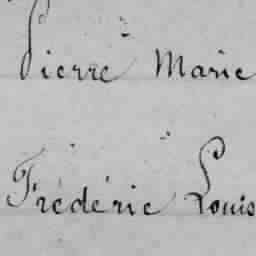 Pierre Marie
Frédéric Louis